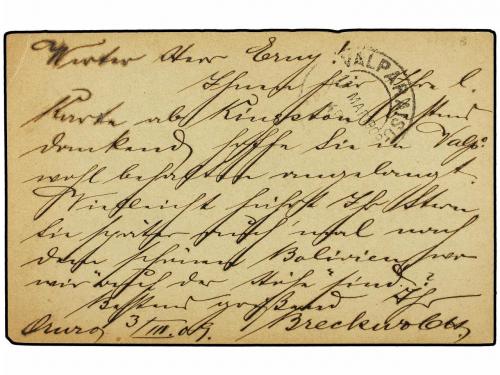 Werter Herr Erny!
Ihnen für Ihre l.
Karte ab Kingston bestens
dankend, hoffe Sie in Valpo.
wohl behalten angelangt.
Vielleicht führt Ihr Stern
Sie später auch 'mal nach
dem schönen Bolivien wo
wir auf der Höhe sind?
Bestens grüßend Ihr
Oruro 3/III.09. Breckwoldt.
VALPARAISO
MAR